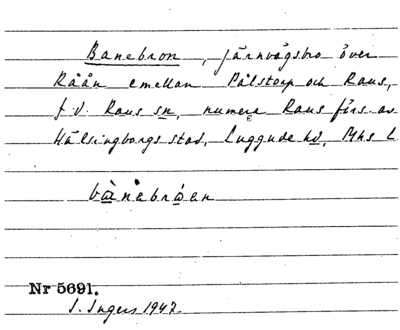 Banebron, järnvägsbro över
Råån emellan Pålstorp och Raus,
f.d. Raus sn, numera Raus förs. av
Hälsingborgs stad, Luggude hd, Mhs L.
bànebróen
Nr 5691.
I. Ingers 1947.